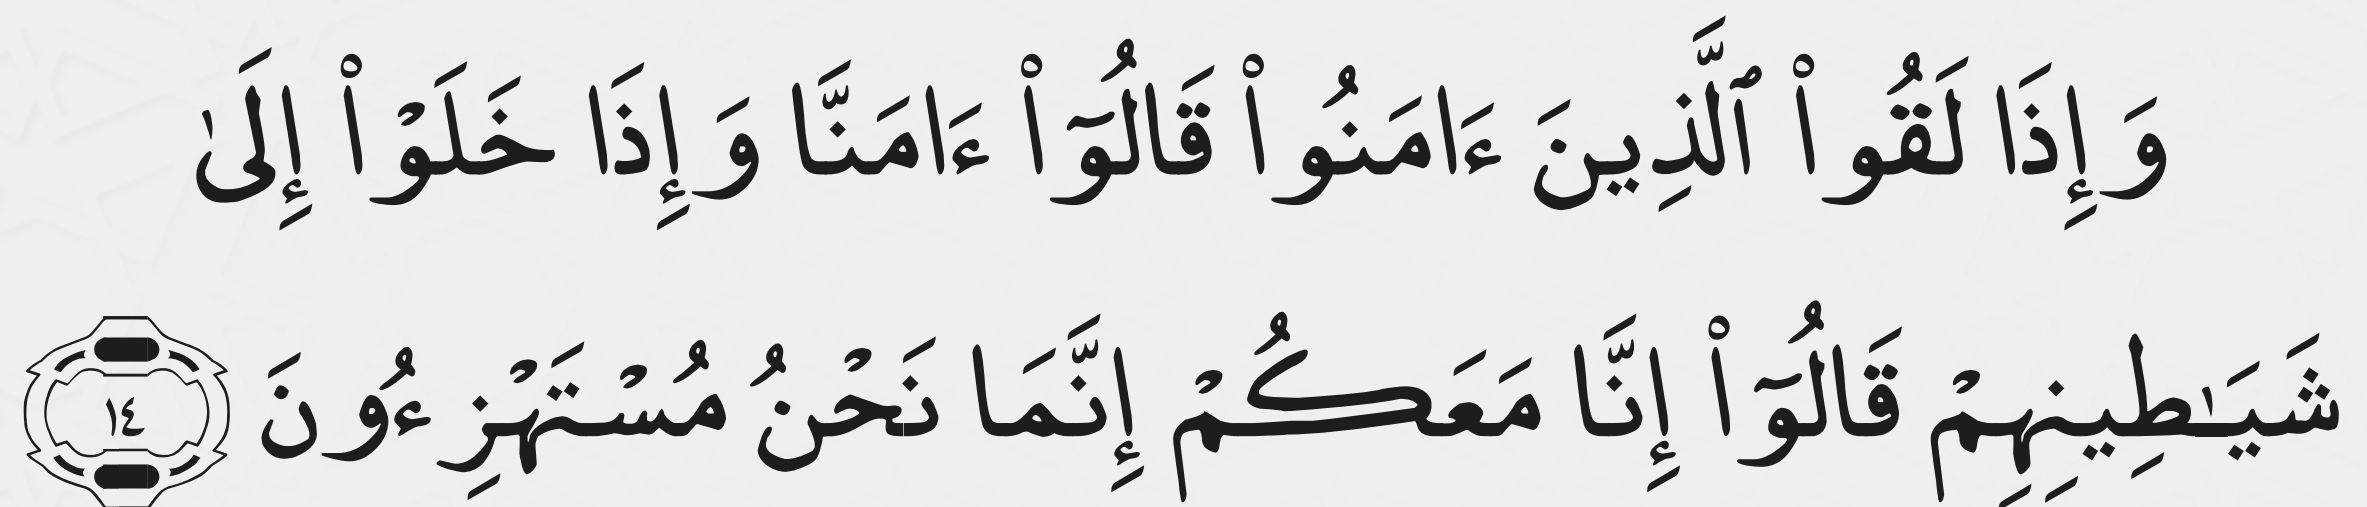 وَإِذَا لَقُوا۟ ٱلَّذِينَ ءَامَنُوا۟ قَالُوٓا۟ ءَامَنَّا وَإِذَا خَلَوْا۟ إِلَىٰ
شَيَـٰطِينِهِمْ قَالُوٓا۟ إِنَّا مَعَكُمْ إِنَّمَا نَحْنُ مُسْتَهْزِءُونَ ١٤